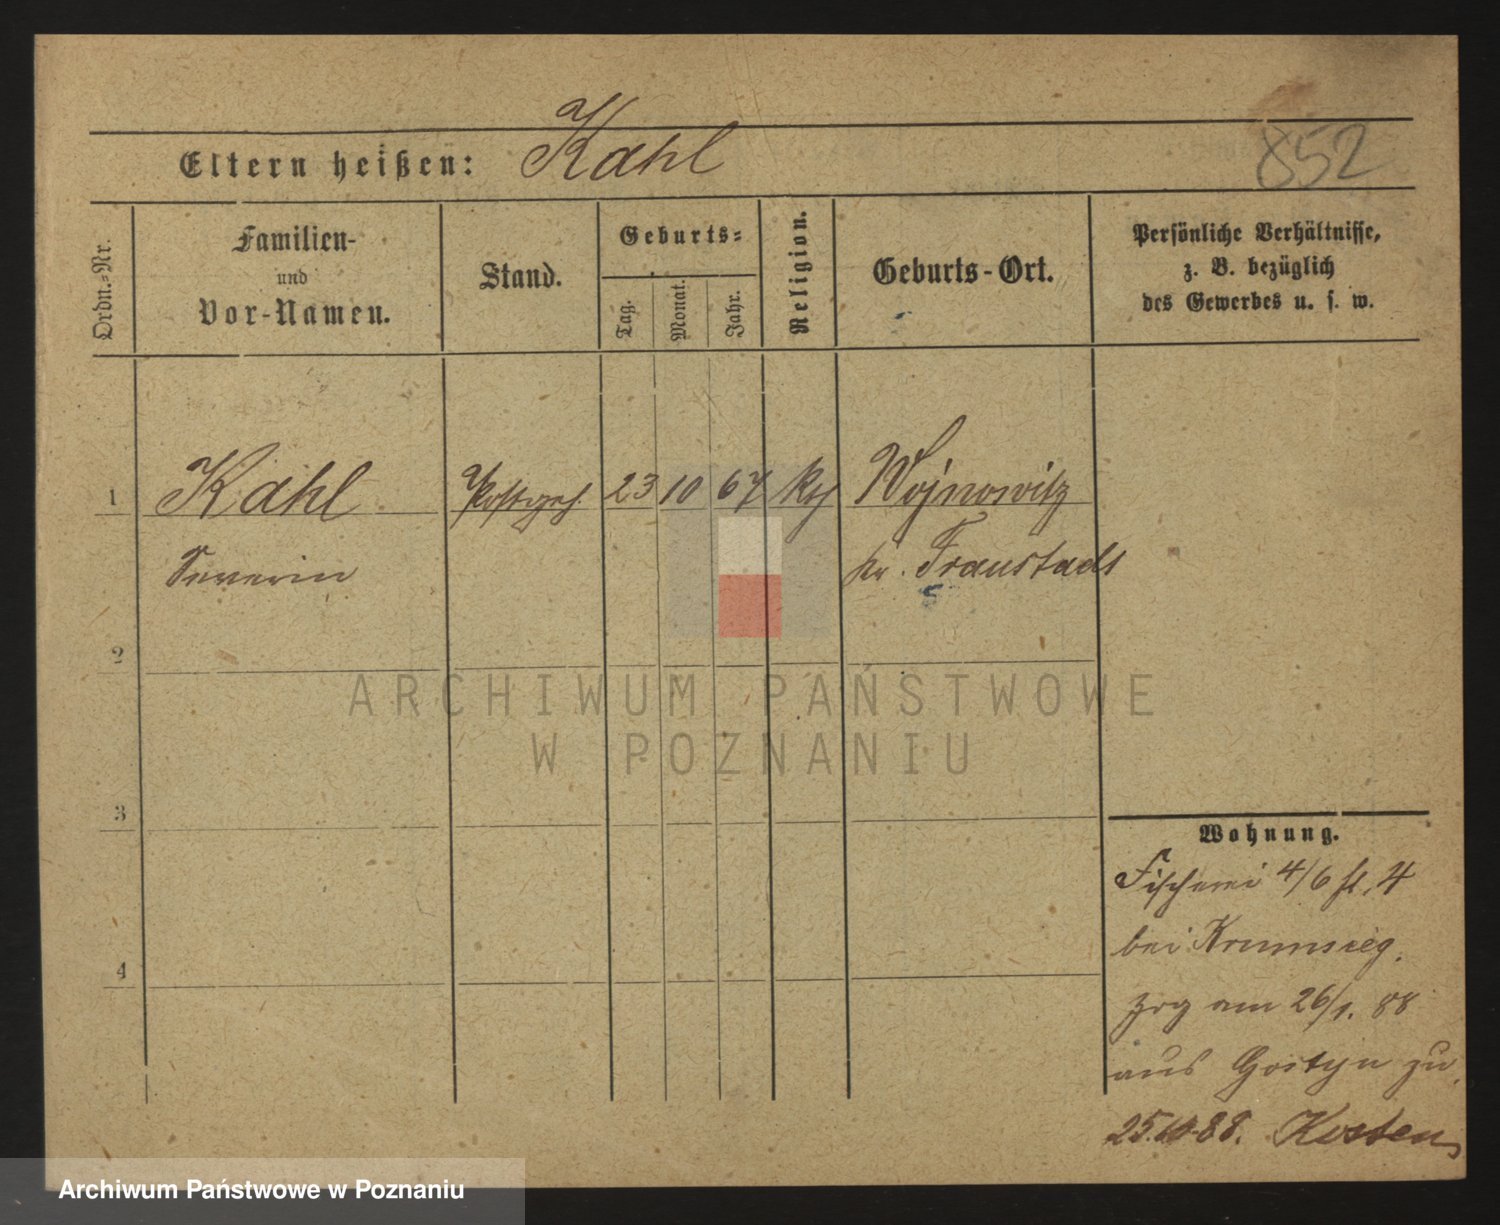 Kahl
Eltern heißen:
852
Ordn.-Nr.
Familien-
und
Vor-Namen.
Stand.
Geburts-
Tag.
Monat.
Jahr.
Religion.
Geburts-Ort.
Persönliche Verhältnisse,
z. B. bezüglich
des Gewerbes u. s. w.
1 Kahl Postgeh. 23 10 67 Wojnowitz
Severin kr. Fraustadt
2
ARCHIWUM PAŃSTWOWE
W POZNANIU
3
Wohnung.
Fischerei 4/6 4
bei
4
zog am 26/1. 88
aus Gostyn zu.
25.10.88. Kosten
Archiwum Państwowe w Poznaniu